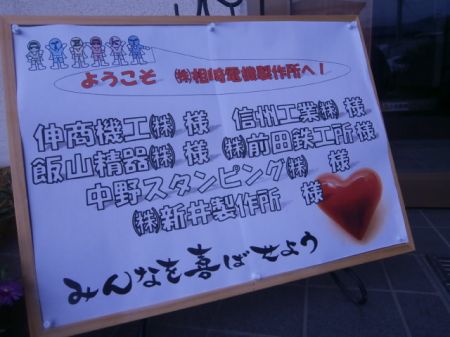 ようこそ ㈱相崎電機製作所へ!
伸商機工㈱ 様 信州工業㈱ 様
飯山精器㈱ 様 ㈱前田鉄工所 様
中野スタンピング㈱ 様
㈱新井製作所 様
みんなを喜ばせよう